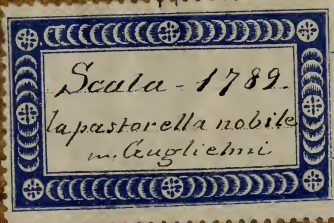 Scala - 1789.
la pastorella nobile
m. Guglielmi